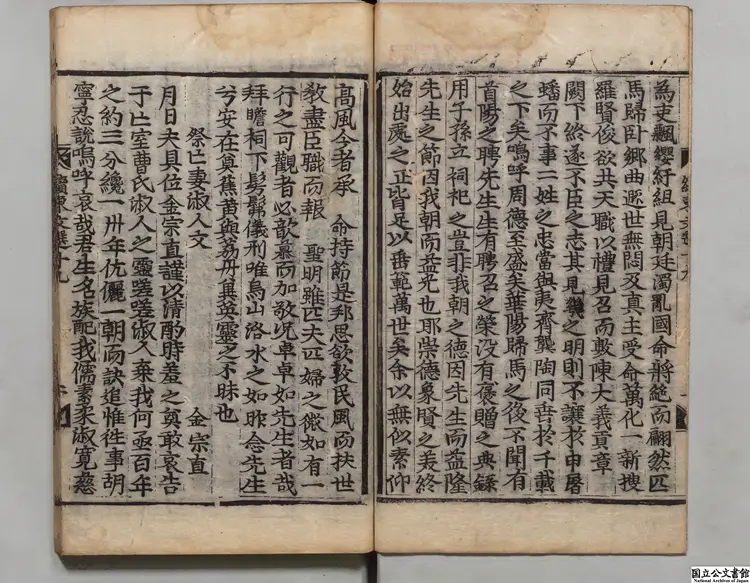 為吏飄纓紆組見朝廷濁亂國命將絶而翩然匹
馬歸卧鄉曲遯世無悶及真主受命萬化一新搜
羅賢俊欲共天職以禮見召而敷陳大義貢章
闕下終遂不臣之志其見幾之明則不讓於申屠
蟠而不事二姓之忠當與夷齊龔陶同垂於千載
之下矣嗚呼周德至盛矣華陽歸馬之後不聞有
首陽之聘先生生有聘召之榮没有褒贈之典錄
用子孫立祠祀之豈非我朝之德因先生而益隆
先生之節因我朝而益光也耶崇德象賢之美終
始出處之正皆足以垂範萬世矣余以無似素仰
高風今者承 命持節是邦思欲敦民風而扶世
教盡臣職而報 聖明雖匹夫匹婦之微如有一
行之可觀者必歆慕而加敬况卓卓如先生者哉
拜瞻祠下髣髴儀刑唯烏山洛水之如昨念先生
兮安在奠蕉黄與荔丹兾英靈之不昧也
祭亡妻淑人文 金宗直
月日夫具位金宗直謹以清酌時羞之奠敢哀告
于亡室曹氏淑人之靈嗟嗟淑人棄我何亟百年
之約三分纔一卅年伉儷一朝而訣追惟徃事胡
寧忍說嗚呼哀哉君生名族配我儒素柔淑寛慈
續東文選十九
國立公文書館
National Archives of Japan